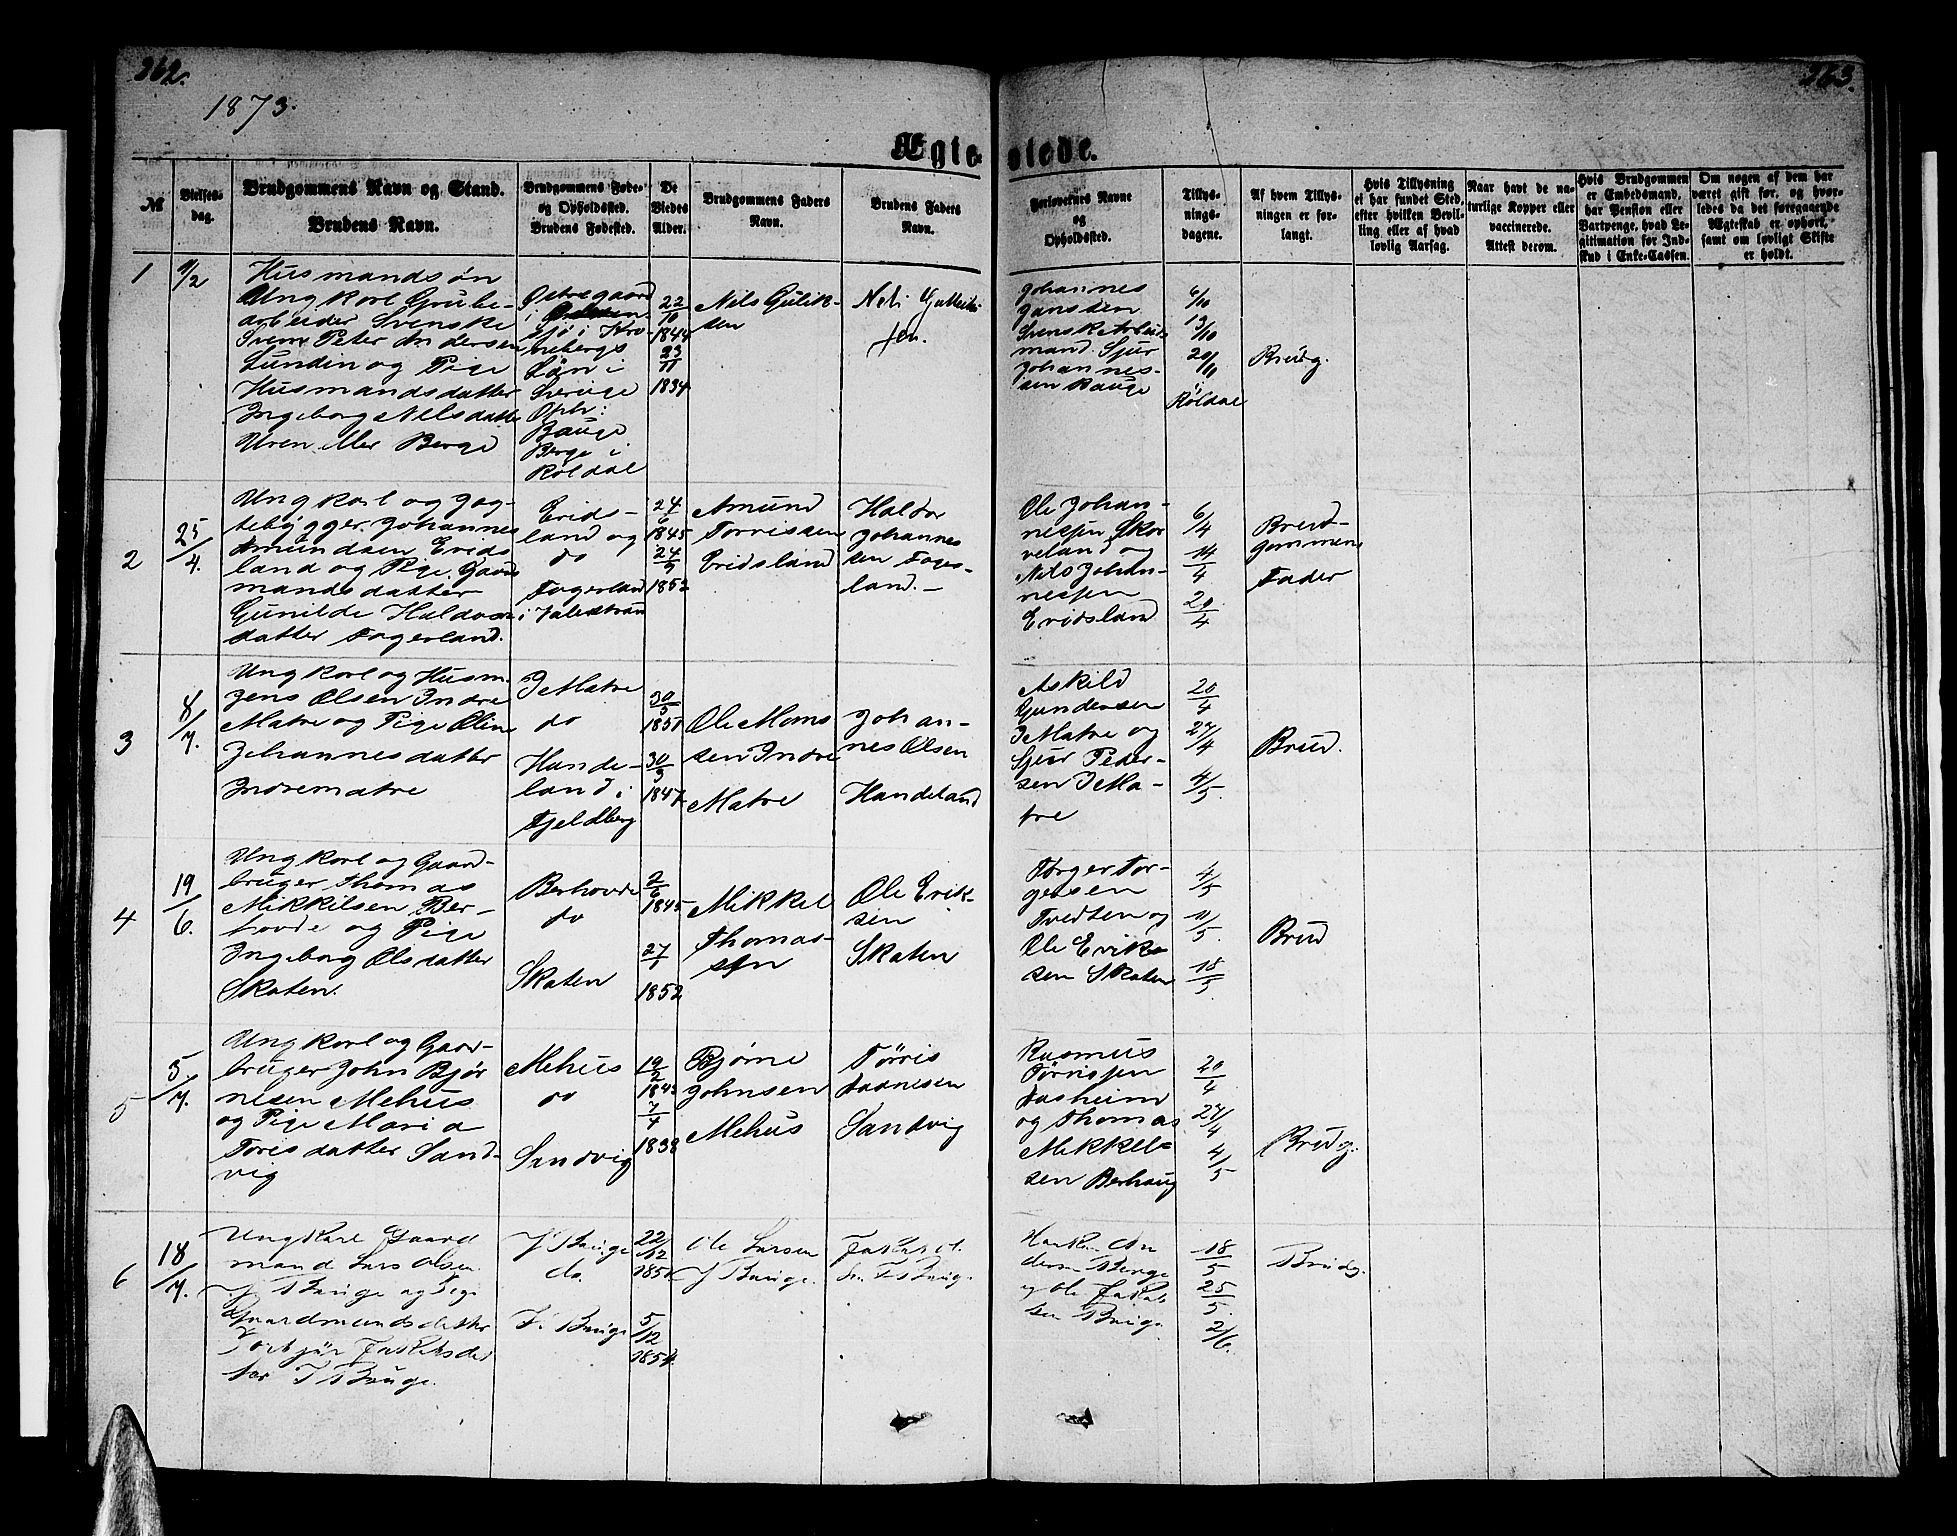 362.
363.
1873.
Ægte-
viede.
№
Vielses-
dag.
Brudgommens Navn og Stand.
Brudens Navn.
Brudgommens Føde-
og Opholdssted.
Brudens Fødested.
De
Viedes
Alder.
Brudgommens Faders
Navn.
Brudens Faders
Navn.
Forlovernes Navne
og
Opholdssted.
Tillys-
nings-
dagene.
Af hvem Tillys-
ningen er for-
langt.
Hvis Tillysning
ei har fundet Sted,
efter hvilken Bevil-
ling eller af hvad
lovlig Aarsag.
Naar havt de na-
turlige Kopper eller
vaccinerede.
Attest derom.
Hvis Brudgommen
er Embedsmand,
har Pension eller
Vartpenge, hvad Le-
gitimation for Ind-
skud i Enke-Cassen.
Om nogen af dem har
været gift før, og hvor-
ledes da det foregaaende
Ægteskab er ophørt,
samt om lovligt Skifte
er holdt.
1
11/2
Husmandsøn
Ungkarl Grube-
arbeider Svenske
Sven Peter Andersen
Lundin og Pige
Husmandsdatter
Ingeborg Nilsdatter
Uren eller Berge
Østregaard
i
sjø i Kro-
nebergs
Län i
Sverige
Oph:
Bauge
Berge i
Røldal
22/10
1844
23/11
1834
Nils Gulik-
sen
Nels
sen.
Johannes
Jansson
Svensk Arbeids
mand. Sjur
Johannes-
sen Bauge
6/10
13/10
20/10
Røldal
Brudg.
2
25/4.
Ungkarl og Jog-
tebygger Johannes
Amundsen Erids
land og Pige Gaard
mandsdatter
Gunilde Haldors
datter Fogerland.
Erids-
land og
do
Fogerland
i Valestrand
24/6
1845
24/9
1853
Amund
Torrissen
Eridsland
Haldor
Johannes
sen Foger-
land.-
Ole Johan-
nessen Skor
veland og
Nils Johan-
nessen
Eridsland
6/4
14/4
20/4
Brud-
gommens
Fader
3
8/7.
Ungkarl og Husm.
Jens Olsen Indre
Matre og Pige Oline
Johannesdatter
Indrematre
I Matre
do
Hande-
land i
Fjeldberg
30/5
1851
30/9
1847
Ole Mons
sen Indre
Matre
Johan-
nes Olsen
Handeland
Askild
Gundersen
I Matre og
Sjur Peder-
sen I Ma-
tre
20/4
27/4
4/5.
Brud.
4
19/6.
Ungkarl og Gaard-
bruger Thomas
Mikkelsen Ber-
hovde og Pige
Ingeborg Olsdatter
Skaten.
Berhovde
do
Skaten
2/6
1845
27/1
1852
Mikkel
Thomas-
sen
Ole Erik-
sen
Skaten
Torger Tor-
gersen
Tvedten og
Ole Erik
sen Skaten
4/5
11/5.
18/5.
Brud
5
5/7.
Ungkarl og Gaar-
bruger John Bjør
nesen Mehus
og Pige Maria
Torisdatter Sand-
vig
Mehus
do
Sandvig
19/2
1843
7/4
1838
Bjørne
Johnsen
Mehus
Tørris
Sandvig
Rasmus
Tørrissen
Aasheim
og Thomas
Mikkel-
sen Berhaug
20/4
27/4
4/5
Brudg.
6
18/7.
Ungkarl Gaard
mand Lars Olsen
Y Bauge og Pige
Gaardmandsdatter
I Bauge.
Y Bauge
do.
I. Bauge
22/12
1851
5/12
1854
Ole Larsen
Y Bauge.
I Bauge.
dersen Berge
og Ole
sen Bauge
18/5
25/5.
2/6.
Brudg.